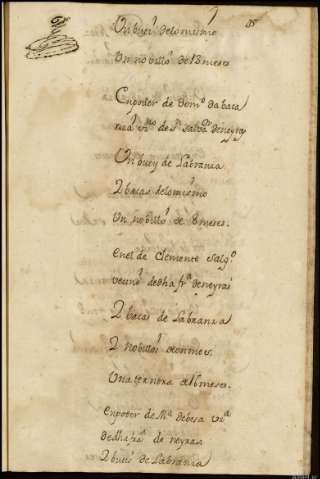 Un buei delomismo
Un nobillo de 18 meses
Enpoder de Dom.º da
de S.n Salv.or deneyra
Un buey de Labranza
2 bacas delomismo
Un nobillo de 8 meses.
Enel de Clemente Salg.º
vecino dedha fr.ª deneyras
2 bacas de Labranza
2 nobillos
Una ternera de 6 meses.
Enpoder de M.ª
dedha de neyras
2 de Labranza